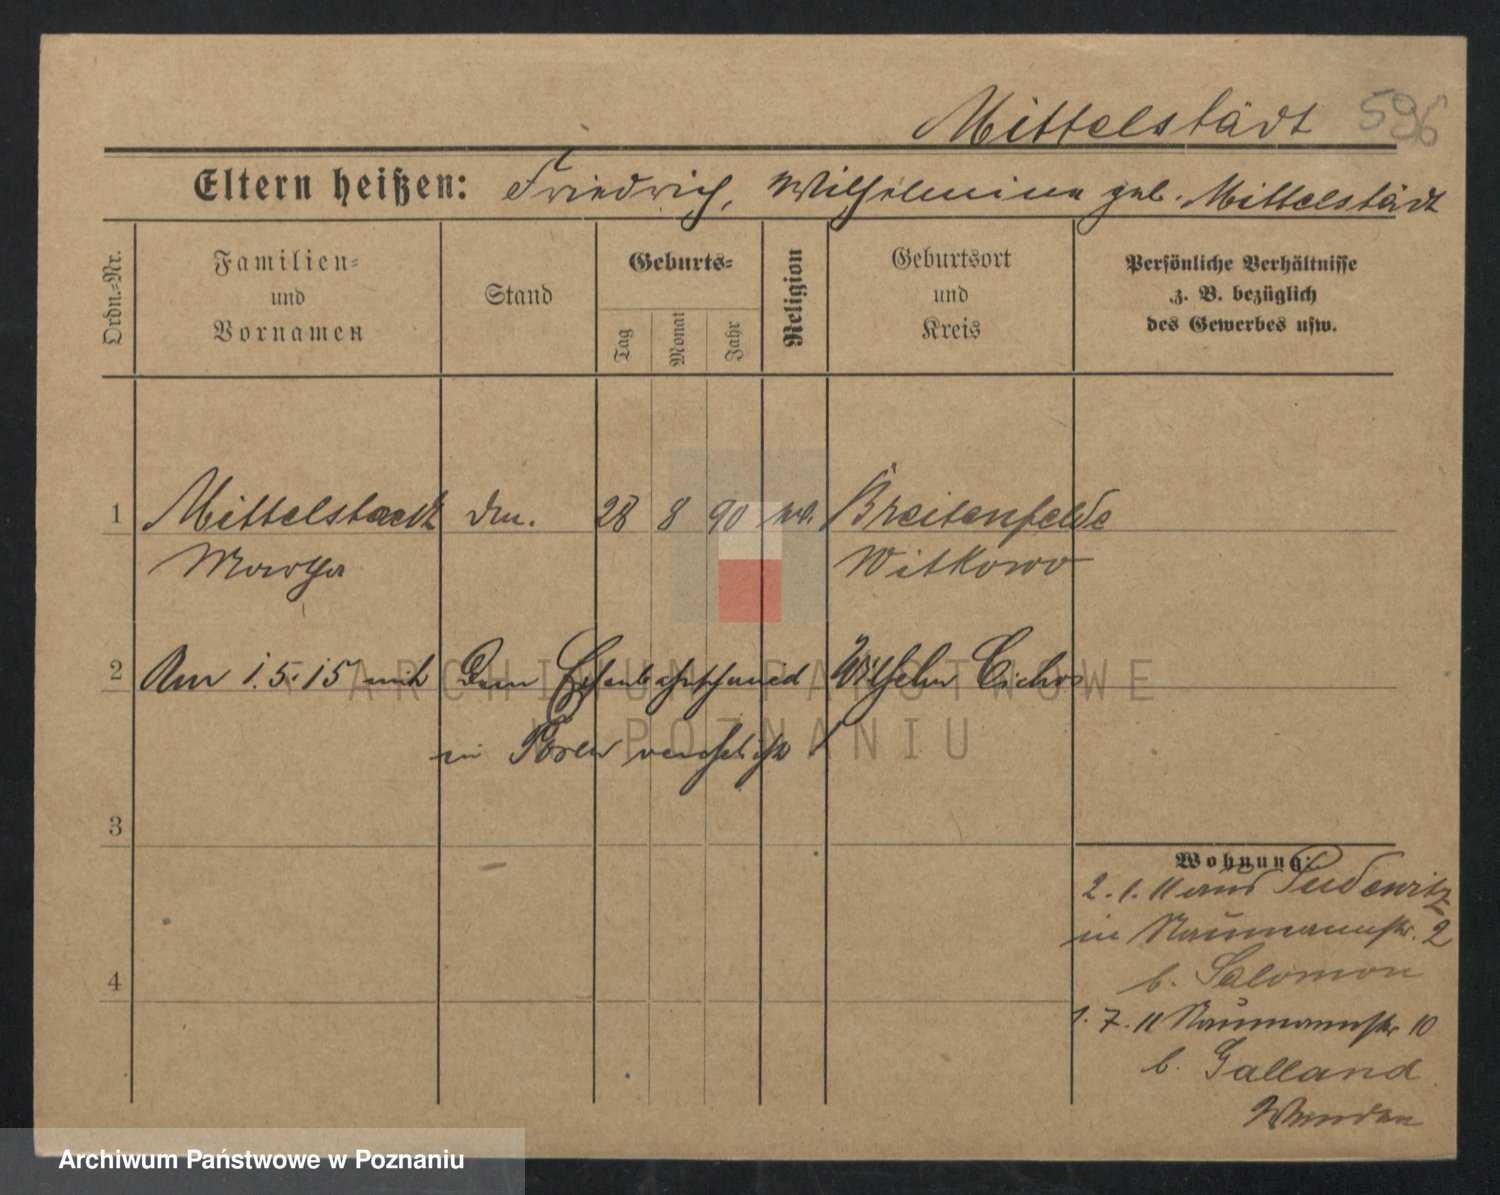 Mittelstädt 596
Eltern heißen: Friedrich, Wilhelmine geb. Mittelstädt
Ordn.-Nr.
Familien-
und
Vornamen
Stand
Geburts-
Tag
Monat
Jahr
Religion
Geburtsort
und
Kreis
Persönliche Verhältnisse
z. B. bezüglich
des Gewerbes usw.
1 Mittelstaedt 28 8 90 Breitenfelde
Martha Witkowo
2 Am 1.5.15 mit dem Eisenbahnschmied Wilhelm Cichos
in Posen verehelicht
3
4
Wohnung:
2. 1. 11 aus Pudewitz
in Naumannstr. 2
b. Salomon
1. 7. 11 Naumannstr 10
b. Galland
ARCHIWUM PAŃSTWOWE
W POZNANIU
Archiwum Państwowe w Poznaniu